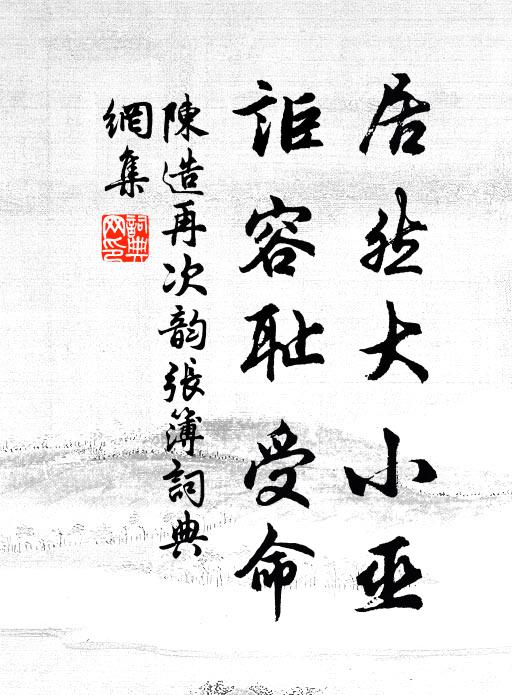 居然大小巫
詎容耻受命
陳造再次韵張簿詞典
網集
詞典
网印